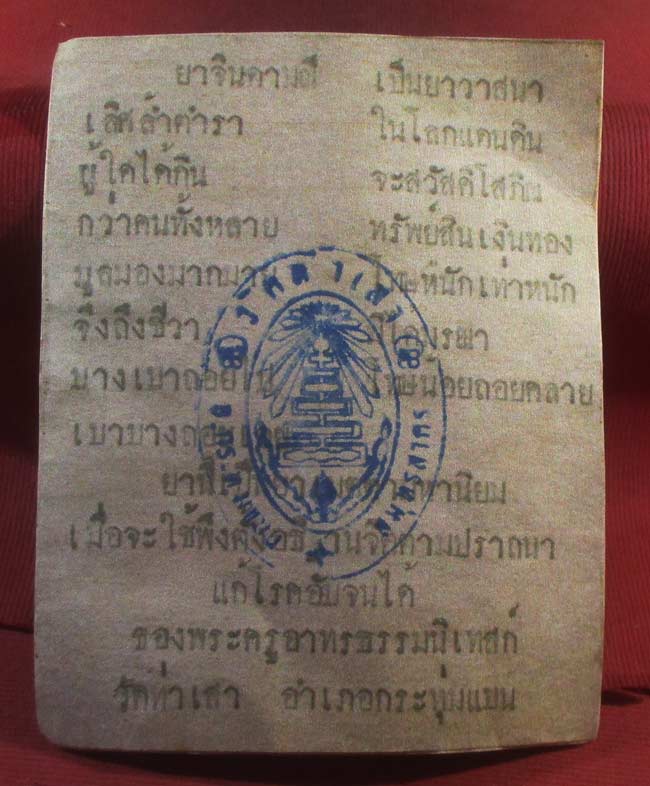 ยาจินดามณี เป็นยาวาสนา
เลิศล้ำตำรา ในโลกแดนดิน
ผู้ใดได้กิน จะสวัสดิโสภิณ
กว่าคนทั้งหลาย ทรัพย์สินเงินทอง
มูลมองมากมาย โทษหนักเท่าหนัก
จึงถึงชีวา
บางเบาถอยไป โทษน้อยถอยคลาย
เบาบาง
เมื่อจะใช้พึงตั้งอธิษฐานจิตตามปราถนา
แก้โรคอับจนได้
ของพระครูอาทรธรรมนิเทสก์
วัดท่าเสา อำเภอกระทุ่มแบน
วัดท่าเสา
สมุทรสาคร